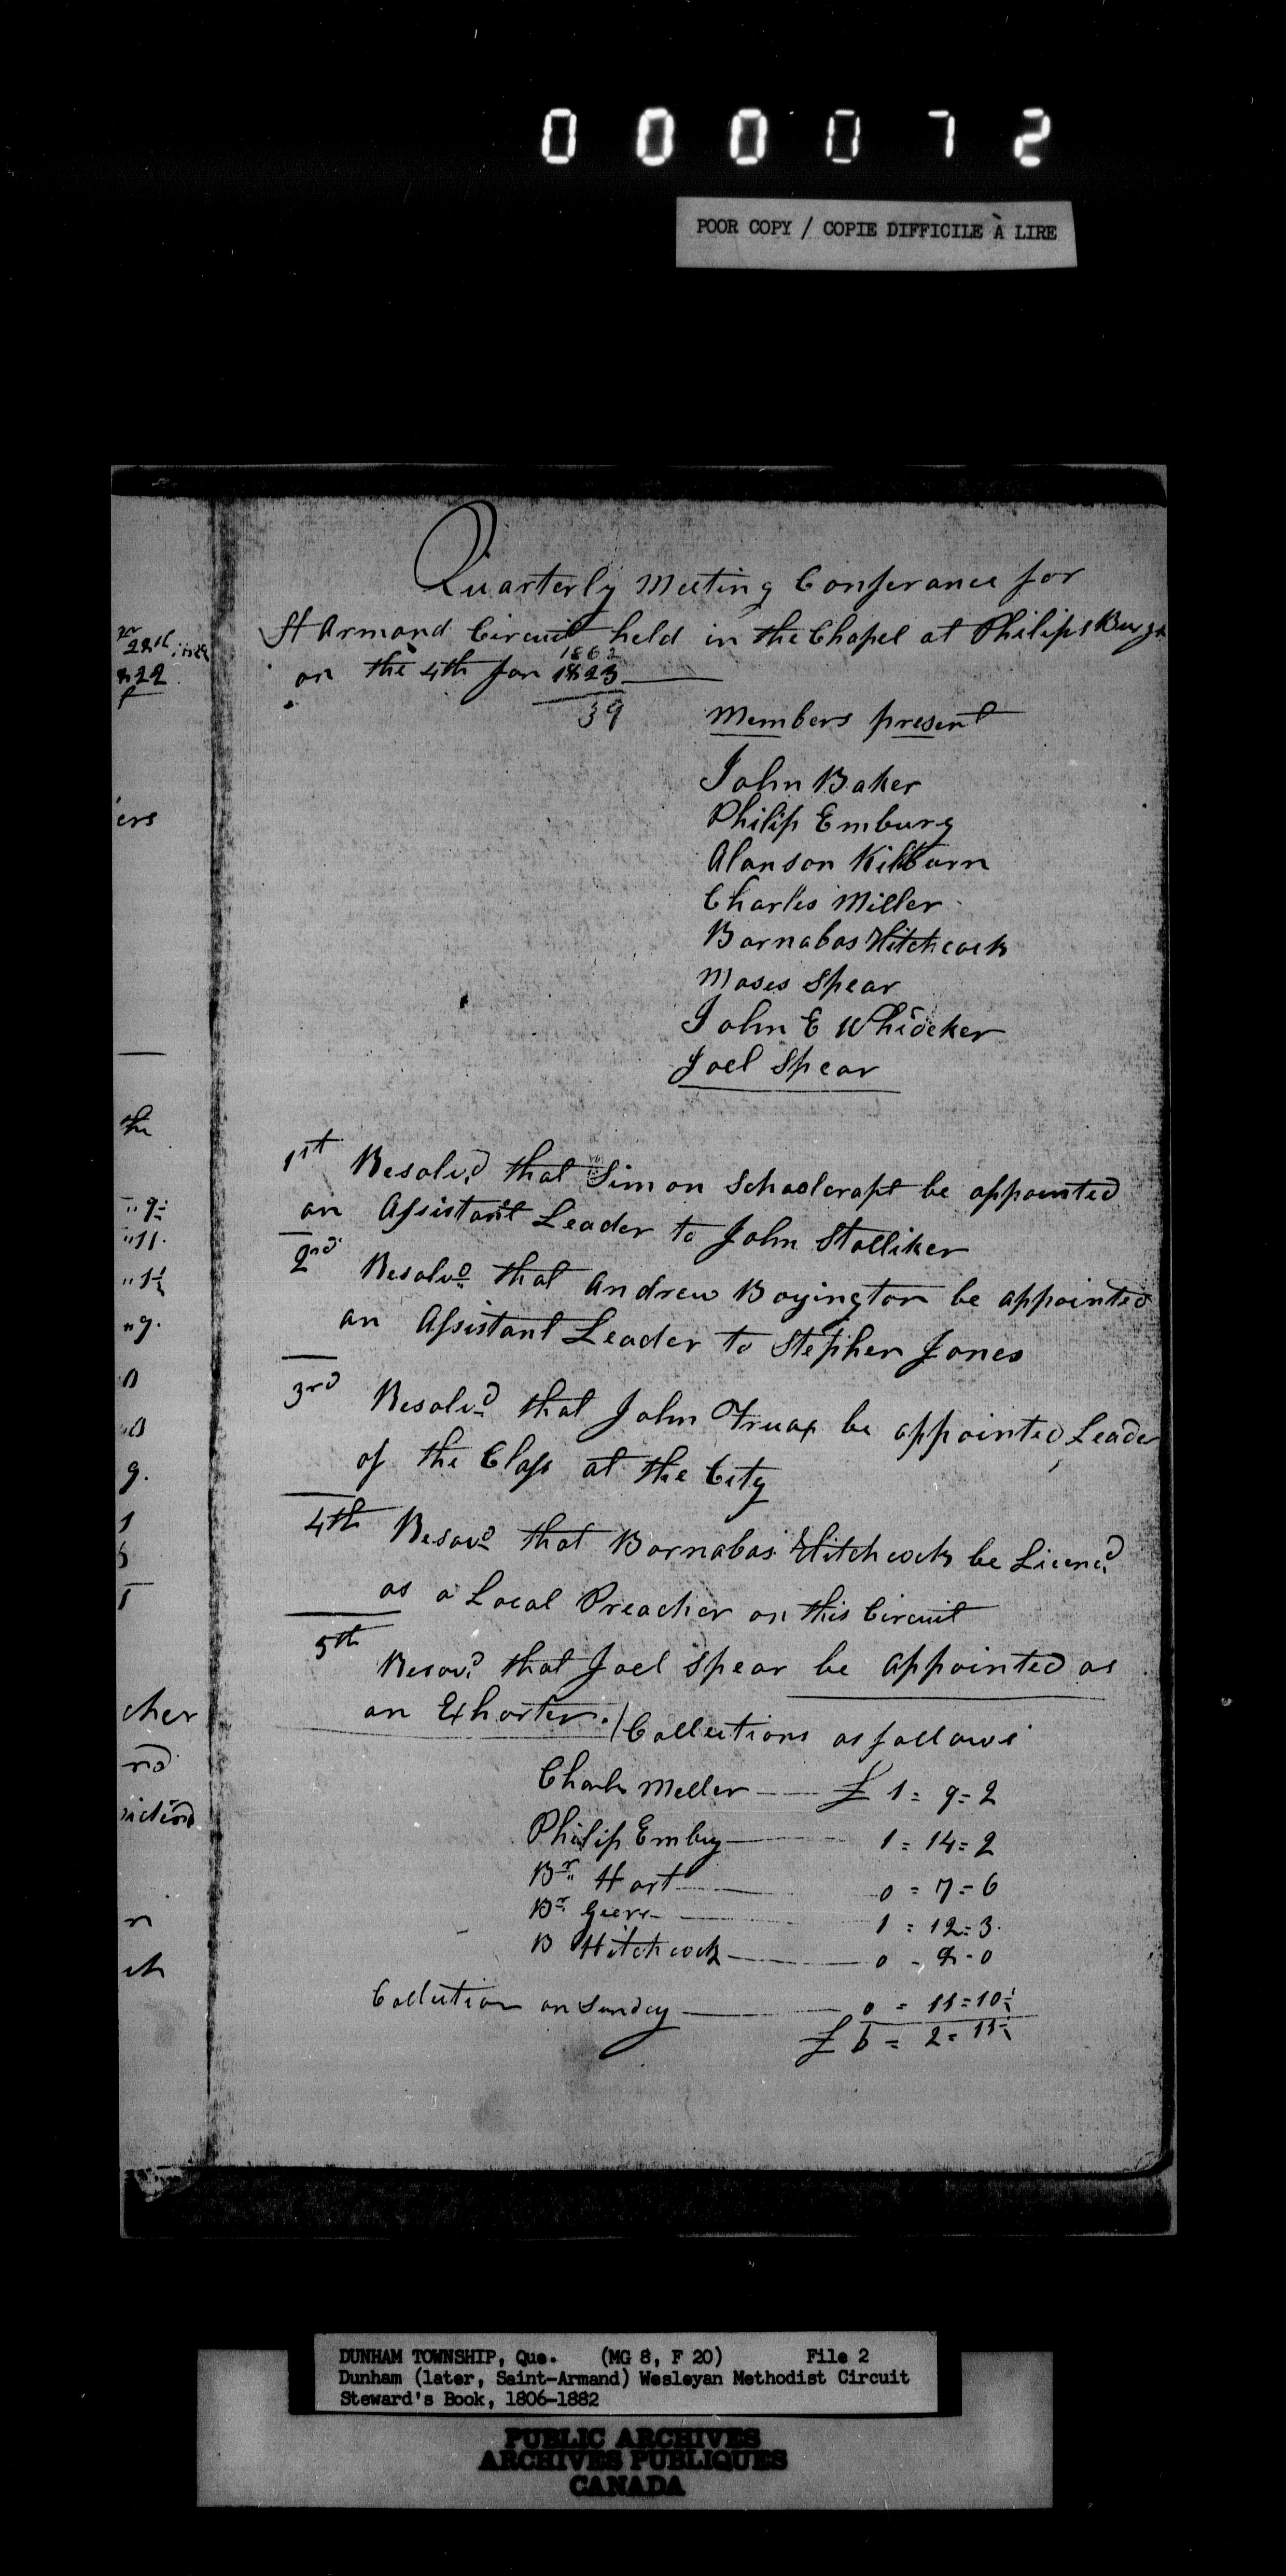 000072
POOR COPY / COPIE DIFFICILE À LIRE
Quarterly Meeting Conferance for
St Armond Circuit held in the Chapel at Philips Burgh
on the 4th Jan 1823
1862
39
Members present
John Baker
Philip Embury
Alanson Kilburn
Charles Miller
Barnabas Hitchcock
Moses Spear
John E Whideker
Joel Spear
1st Resolvd that Simon Schoolcraft be appointed
an Assistant Leader to John Stalliker
2nd Resolvd that Andrew Boyington be appointed
an Assistant Leader to Stephen Jones
3rd Resolvd that John Truax be appointed Leader
of the Class at the City
4th Resovd that Barnabas Hitchcock be Licencd
as a Local Preacher on this Circuit
5th Resovd that Joel Spear be appointed as
an Exhorter. Collections as follows
Charles Meller £ 1 = 9 = 2
Philip Embuy 1 = 14 = 2
Br Hart 0 = 7 = 6
Br Geer 1 = 12 = 3
B Hitchcock 0 - 8 - 0
Collection on Sunday 0 = 11 = 10½
£ 6 = 2 = 11½
ers
the
cher
DUNHAM TOWNSHIP, Que. (MG 8, F 20) File 2
Dunham (later, Saint-Armand) Wesleyan Methodist Circuit
Steward's Book, 1806-1882
PUBLIC ARCHIVES
ARCHIVES PUBLIQUES
CANADA